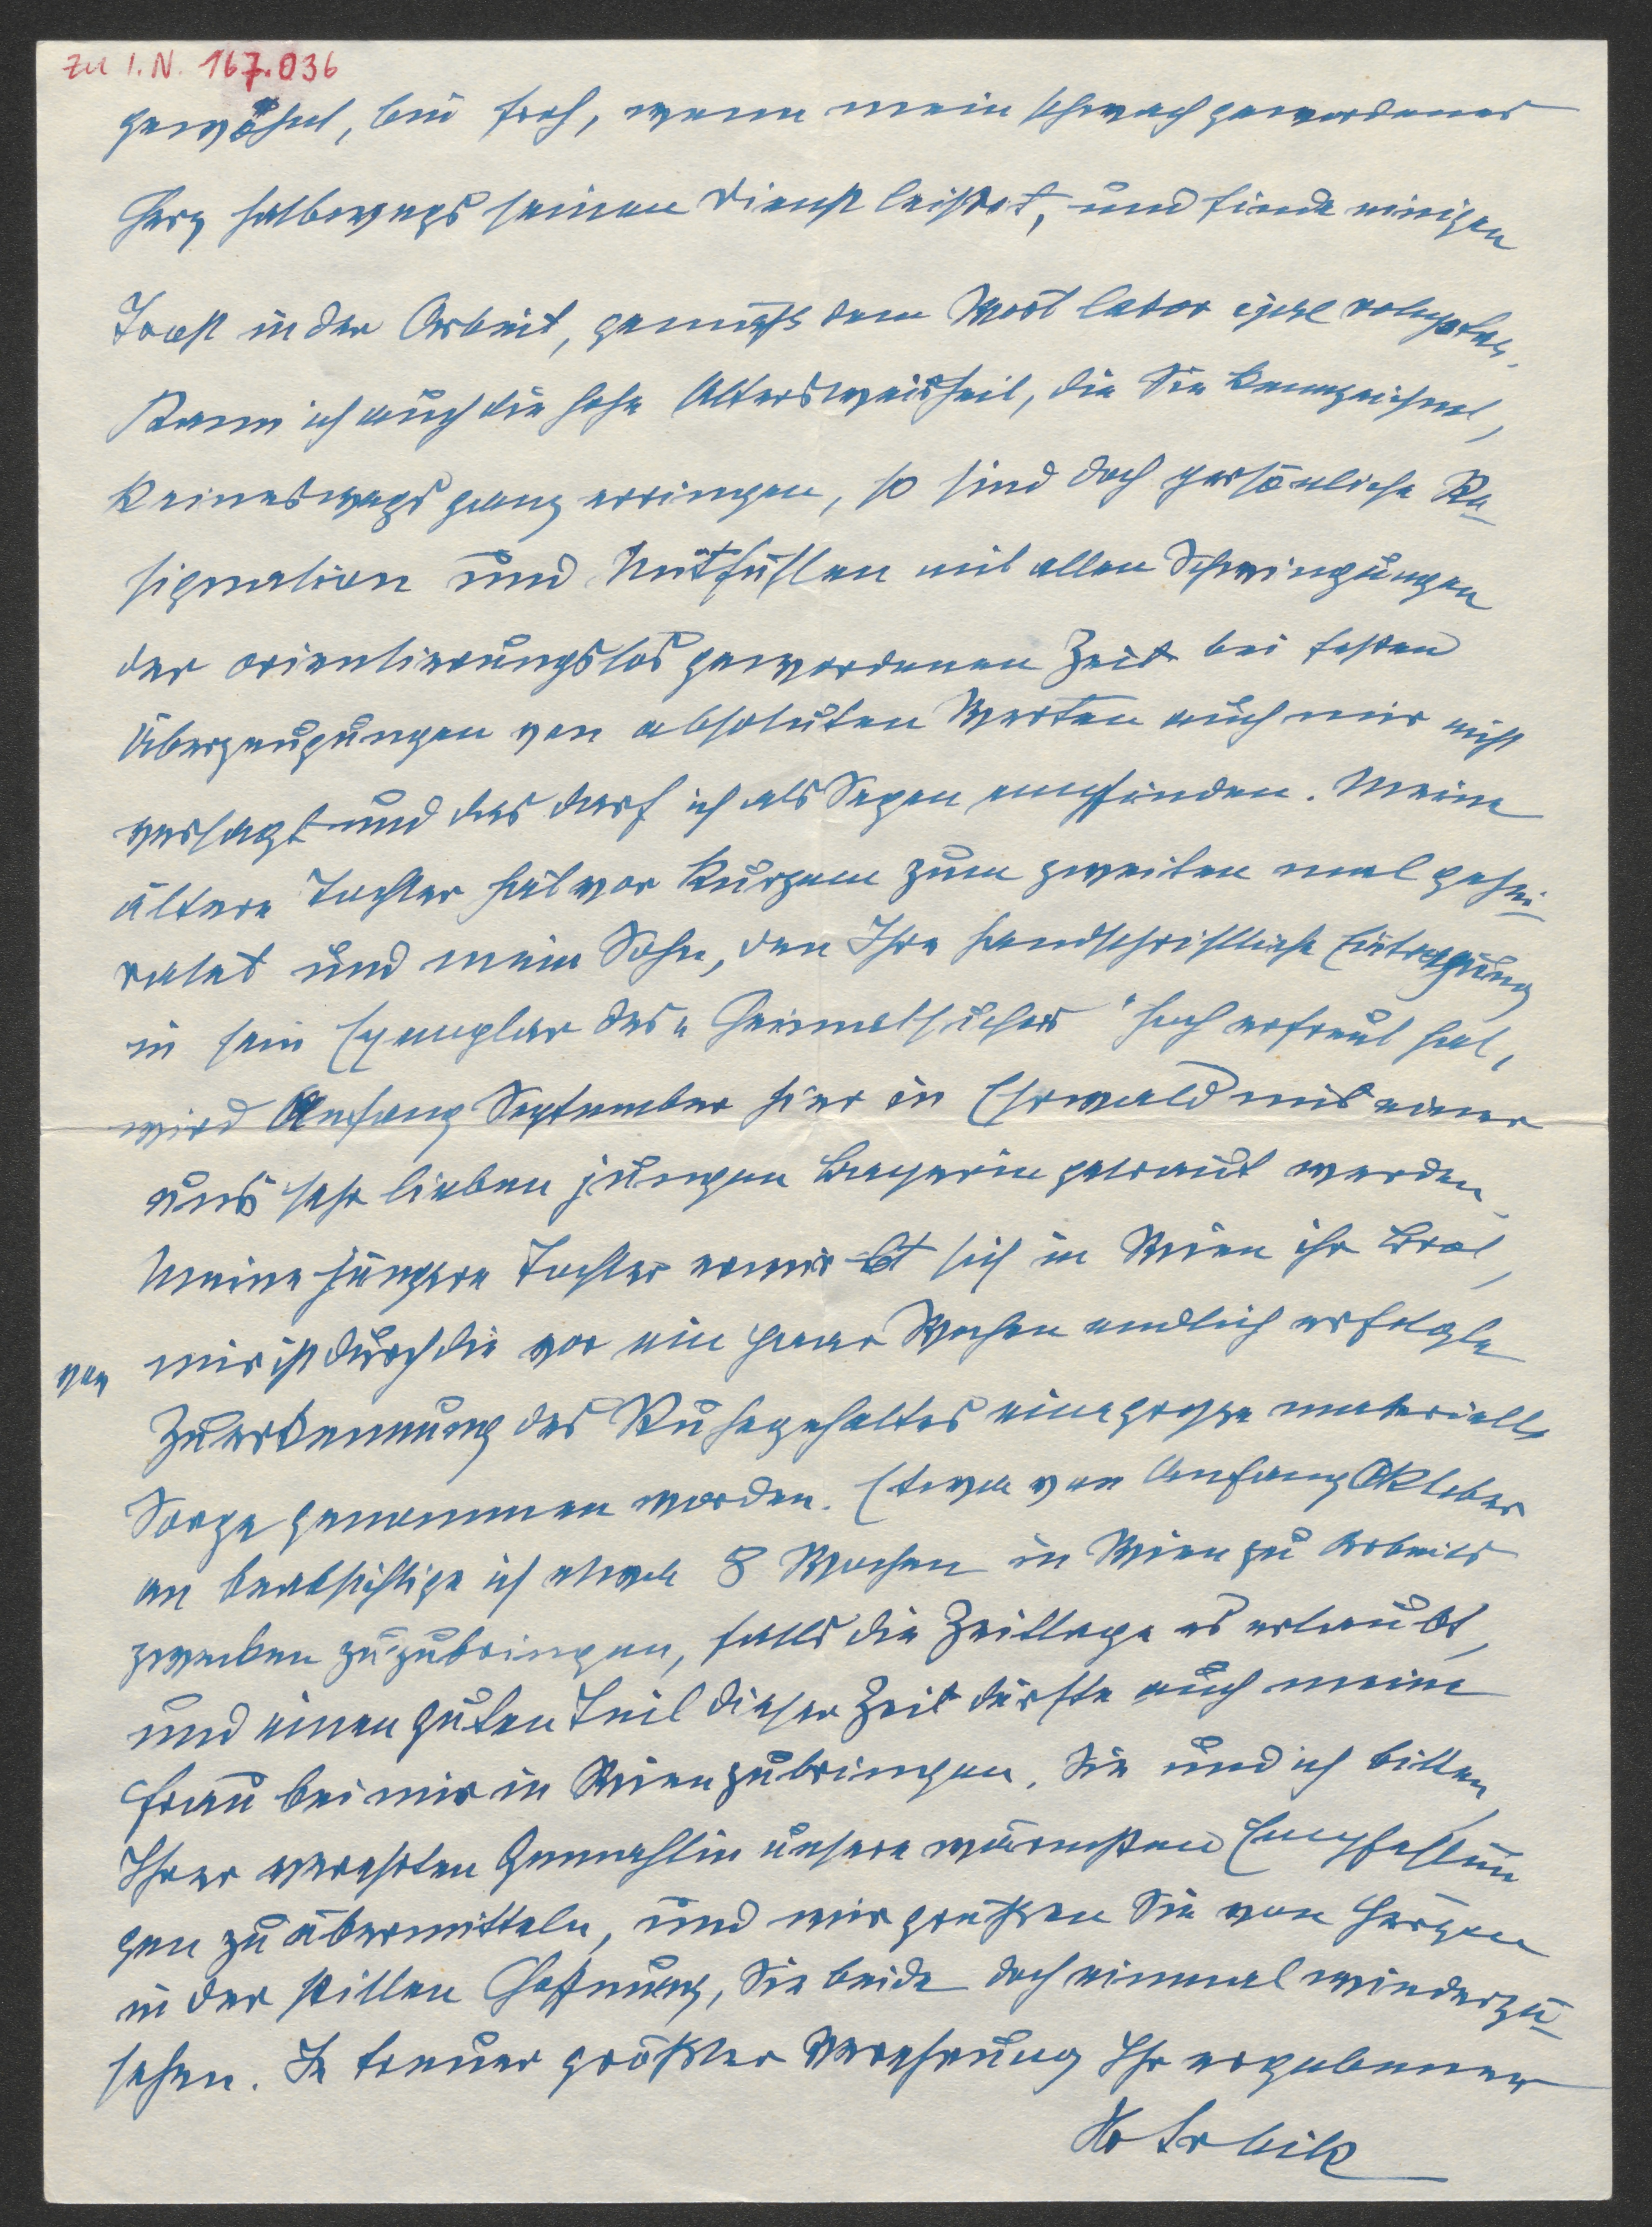 zu I.N. 167.036
gewöhnt, bin froh, wenn mein schwach gewordenes
Herz halbwegs seinen Dienst leistet, und finde einigen
Trost in der Arbeit, gemäß dem Wort labor ipse voluptas.
Kann ich auch die hohe Altersweisheit, die Sie kennzeichnet,
keineswegs ganz erringen, so sind doch persönliche Re-
signation und Mitfühlen mit allen Schwingungen
der orientierungslos gewordenen Zeit bei festen
Überzeugungen von absoluten Werten auch mir nicht
versagt und das darf ich als Segen empfinden. Meine
ältere Tochter hat vor Kurzem zum zweiten mal gehei-
ratet und mein Sohn, den Ihre handschriftliche Eintragung
in sein Exemplar des „Heimatsucher" hoch erfreut hat,
wird Anfang September hier in Ehrwald mit einer
uns sehr lieben jungen Bayerin getraut werden.
Meine jüngere Tochter erwirbt sich in Wien ihr Brot,
von mir ist durch die vor ein paar Wochen endlich erfolgte
Zuerkennung des Ruhegehaltes eine grosse materielle
Sorge genommen worden. Etwa von Anfang Oktober
an beabsichtige ich etwa 8 Wochen in Wien zu Arbeits
zwecken zuzubringen, falls die Zeitlage es erlaubt,
und einen guten Teil dieser Zeit dürfte auch meine
Frau bei mir in Wien zubringen. Sie und ich bitten,
Ihrer verehrten Gemahlin unsere wärmsten Empfehlun
gen zu übermitteln, und wir grüßen Sie von Herzen
in der stillen Hoffnung, Sie beide doch einmal wiederzu-
sehen. In treuer größter Verehrung Ihr ergebener
HvSrbik